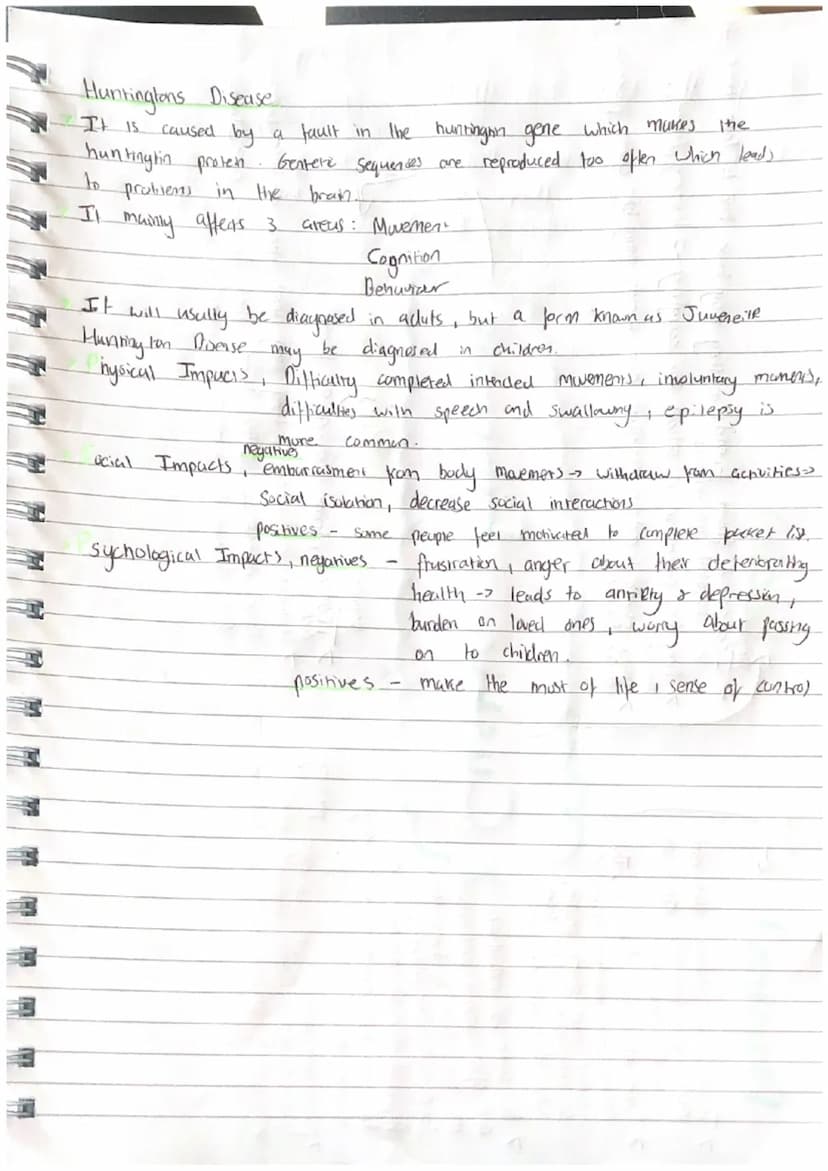 Huntingtons Disease
It is caused by a fault in the huntington gene which makes the
huntingtin protein. Genteric sequences are reproduced too often which leads
to problems in the brain.
It mainly affects 3 areas: Movement
Cognition
Behaviour
It will usually be diagnosed in aduts, but a form known as Juveneile
Huntington Disease may be diagnosed in children.
Physical Impacts, Difficulty completed intended movements, involuntary moments,
difficulties with speech and swallowing, epilepsy is
more common.
negatives
Social Impacts, embarrasment from body movements → withdraw from activities →
Social isolation, decrease social interactions
positives - some people feel motivated to complete bucket list.
Psychological Impacts, negatives - frustration, anger about their deteriorating
health → leads to anxiety & depression,
burden on loved ones, worry about passing
on to children.
positives - make the most of life, sense of control